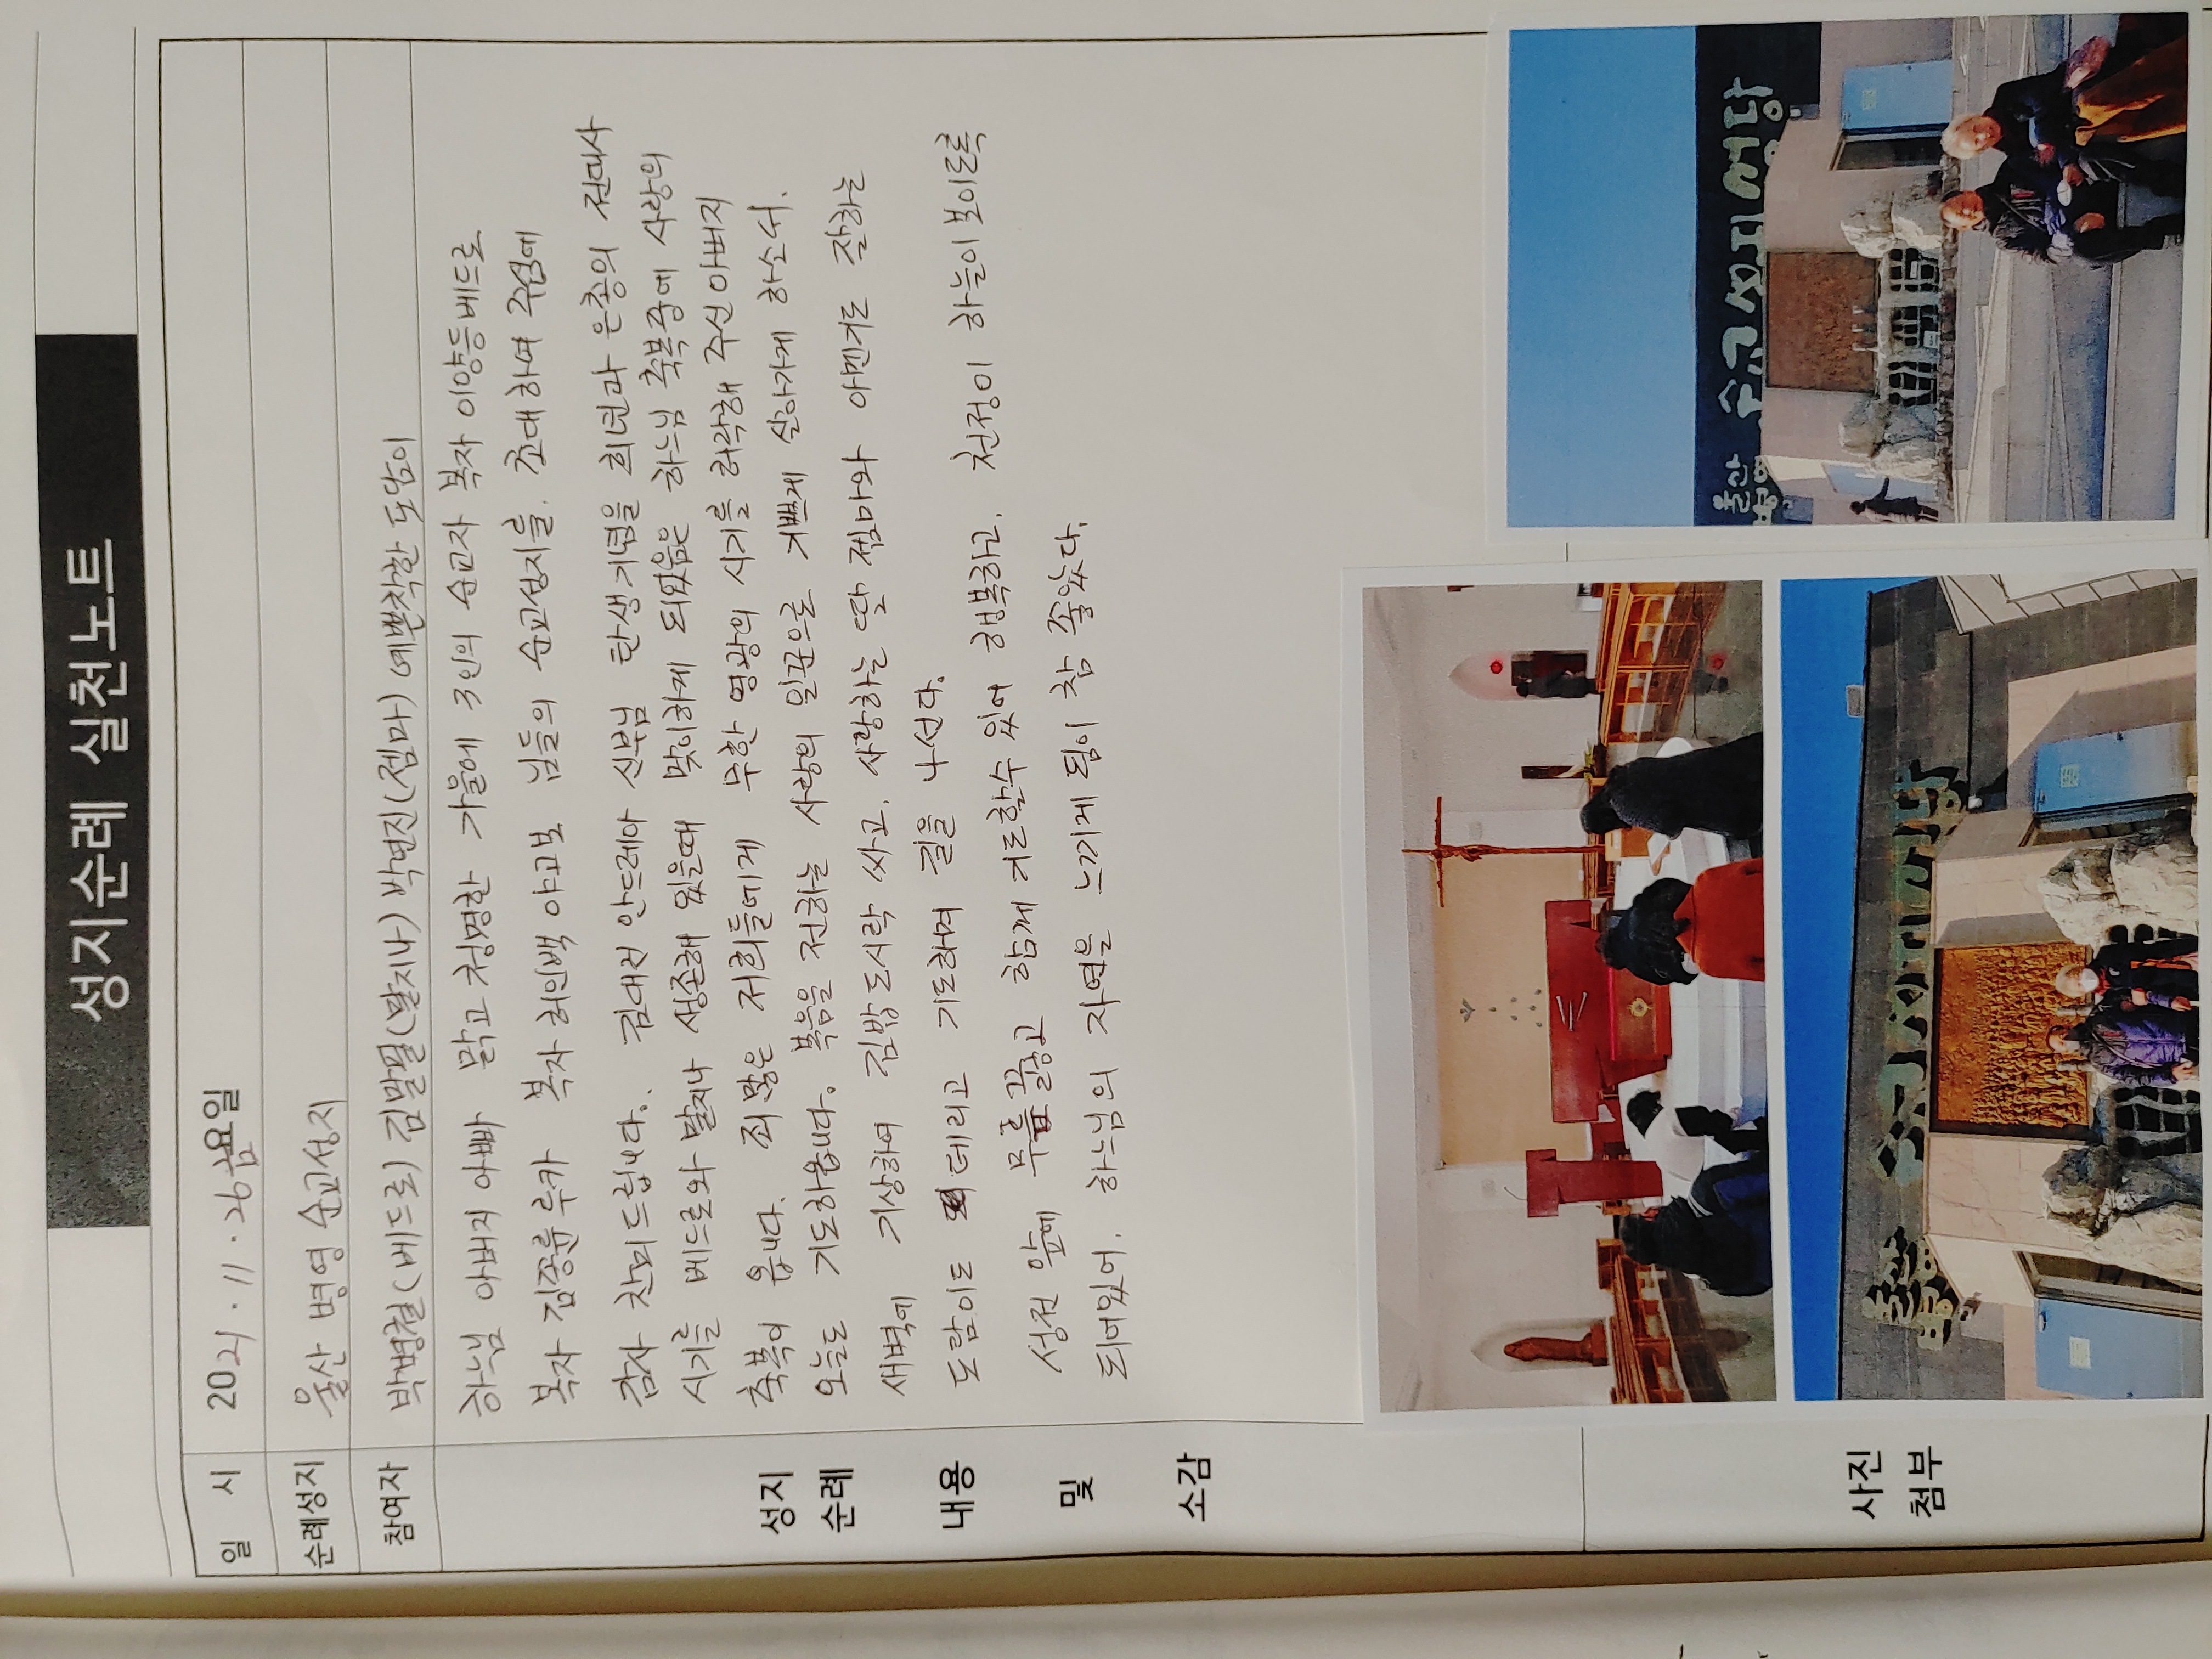 성지순례 실천노트
일 시
2021 . 11 . 26 금요일
순례성지
울산 병영 순교성지
참여자
박병철(베드로) 김말필(말지나) 박연진(젬마) 예쁜착한 도담이
성지
순례
내용
및
소감
하느님 아버지 아빠 맑고 청명한 가을에 3인의 순교자 복자 이양등베드로
복자 김종륜루카 복자 허인백 야고보 님들의 순교성지를. 초대하여 주심에
감사 찬미드립니다. 김대건 안드레아 신부님 탄생기념을 희년과 은총의 전대사
시기를 베드로와 말지나 생존해 있을때 맞이하게 되었음은 하느님 축복중에 사랑의
축복이 옵니다. 죄많은 저희들에게 무한 영광의 시기를 허락해 주신 아버지
오늘도 기도하옵니다. 복음을 전하는 사랑의 일꾼으로 기쁘게 살아가게 하소서.
새벽에 기상하여 김밥도시락 싸고, 사랑하는 딸 젬마와 아멘기도 잘하는
도담이도 데리고 기도하며 길을 나선다.
성전 앞에 무릎꿇고 함께 기도할수 있어 행복하고, 천정이 하늘이보이도록
되어있어, 하느님의 자연을 느끼게 됨이 참 좋았다.
사진
첨부
울산
병영
순교성지성당
울산
병영
순교성지성당